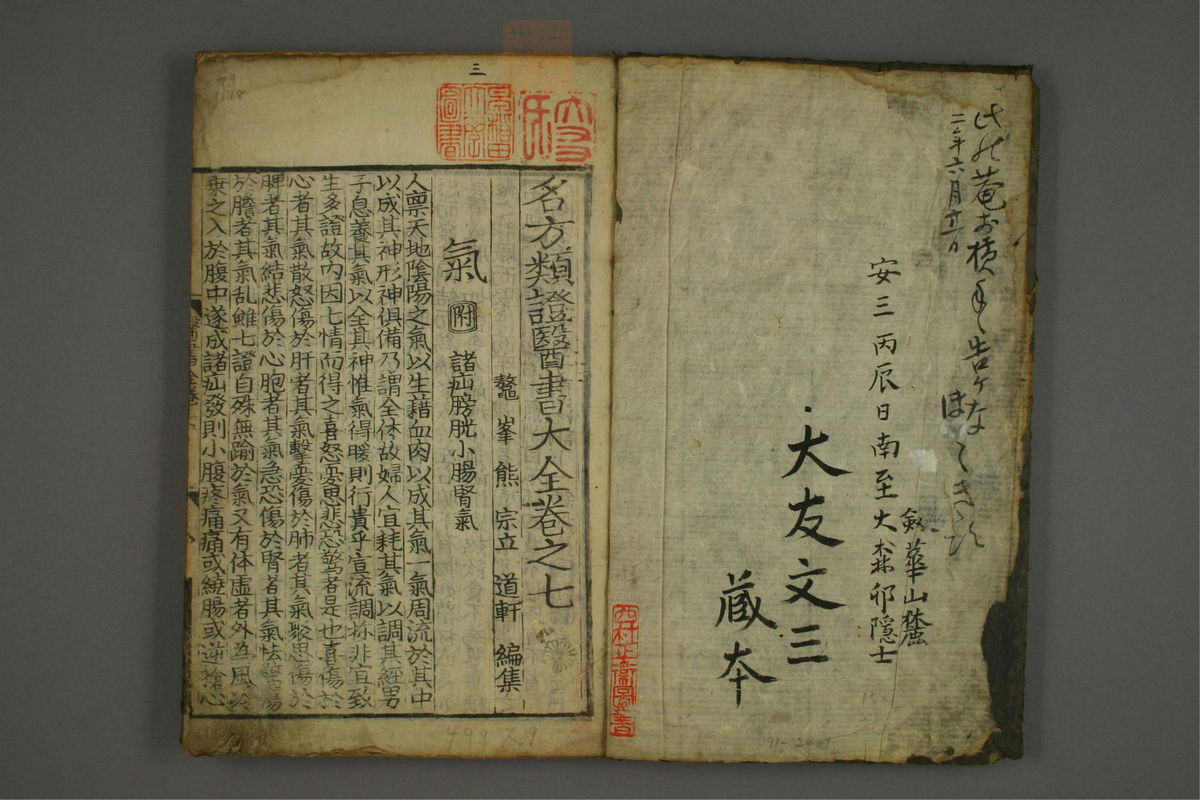 二年六月
安三丙辰日南至大森邨隱士
大友文三
藏本
三
名方類證醫書大全卷之七
鼇峯熊宗立道軒編集
氣 附 諸疝膀胱小腸腎氣
人禀天地陰陽之氣以生藉血肉以成其氣一氣周流於其中
以成其神形神俱備乃謂全体故婦人宜耗其氣以調其經男
子息養其氣以全其神惟氣得暖則行貴乎宣流調亦非宜致
生多證故内因七情而得之喜怒憂思悲恐驚者是也喜傷於
心者其氣散怒傷於肝者其氣擊憂傷於肺者其氣聚思傷於
脾者其氣結悲傷於心胞者其氣急恐傷於腎者其氣怯驚傷
於膽者其氣乱雖七證自殊無踰於氣又有体虛者外為風冷
乘之入於腹中遂成諸疝發則小腹疼痛痛或繞腸或逆搶心